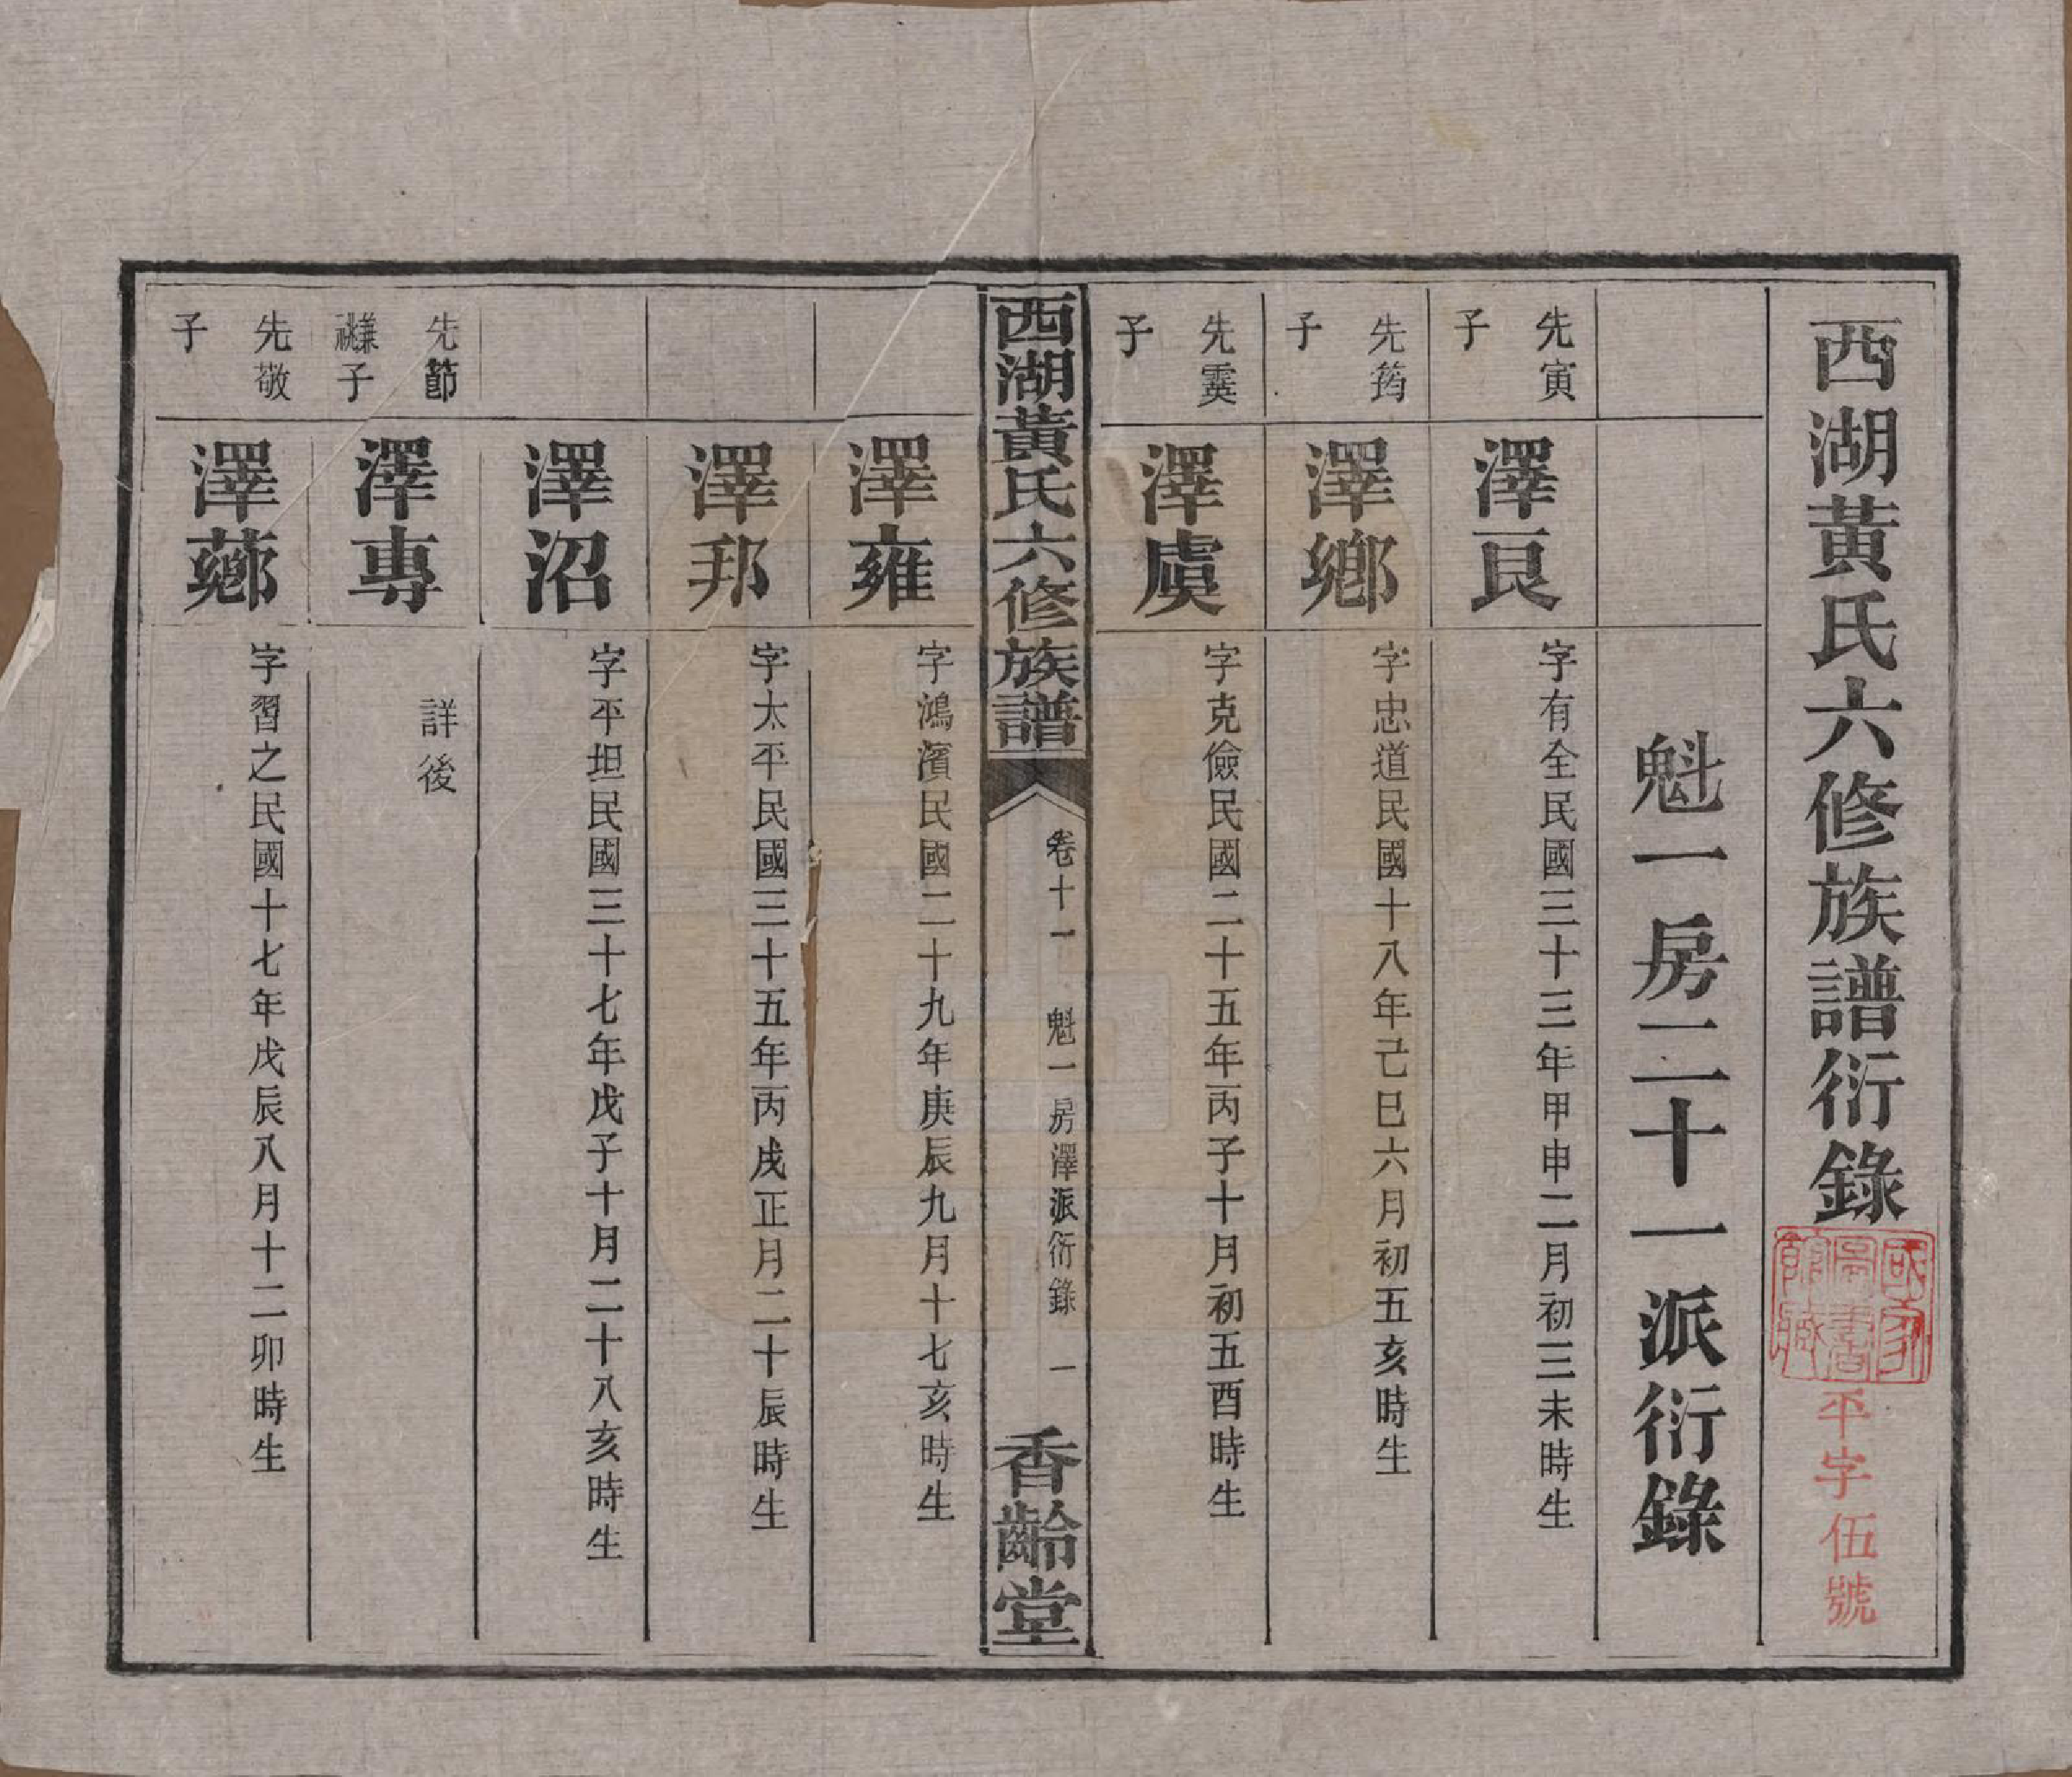 西湖黃氏六修族譜衍錄
國家圖書館藏
平字伍號
魁一房二十一派衍錄
先寅子
澤艮
字有全民國三十三年甲申二月初三未時生
先筠子
澤鄉
字忠道民國十八年己巳六月初五亥時生
先霙子
澤虞
字克儉民國二十五年丙子十月初五酉時生
西湖黃氏六修族譜
卷十一 魁一房澤派衍錄 一
香齡堂
澤雍
字鴻濱民國二十九年庚辰九月十七亥時生
澤邦
字太平民國三十五年丙戌正月二十辰時生
澤沼
字平坦民國三十七年戊子十月二十八亥時生
先節兼祧子
澤專
詳後
先敬子
澤薌
字習之民國十七年戊辰八月十二卯時生